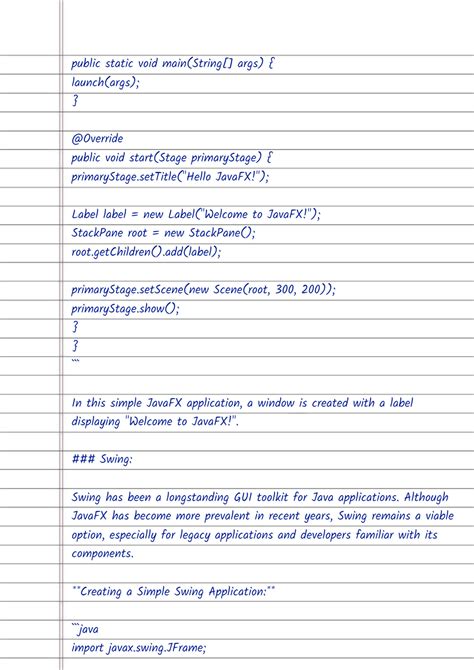 public static void main(String[] args) {
launch(args);
}
@Override
public void start(Stage primaryStage) {
primaryStage.setTitle("Hello JavaFX!");
Label label = new Label("Welcome to JavaFX!");
StackPane root = new StackPane();
root.getChildren().add(label);
primaryStage.setScene(new Scene(root, 300, 200));
primaryStage.show();
}
}
```
In this simple JavaFX application, a window is created with a label
displaying "Welcome to JavaFX!".
### Swing:
Swing has been a longstanding GUI toolkit for Java applications. Although
JavaFX has become more prevalent in recent years, Swing remains a viable
option, especially for legacy applications and developers familiar with its
components.
**Creating a Simple Swing Application:**
```java
import javax.swing.JFrame;